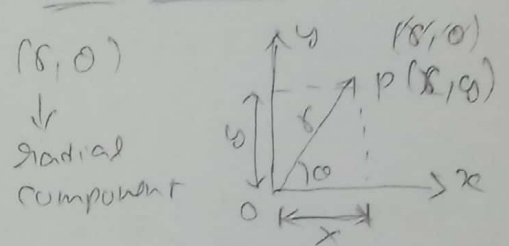 (r, θ)
radial
component
y
(r, θ)
P(x, y)
y
r
θ
x
O
x